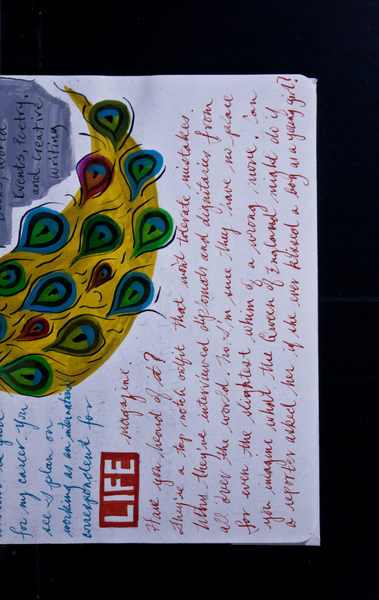 World
Events, Poetry,
and Creative
Writing
for my career. You
see I plan on
working as an international
correspondent for
LIFE magazine.
Have you heard of it?
They're a top notch outfit that won't tolerate mistakes.
they've interviewed diplomats and dignitaries from
all over the world. No. I'm sure they have no place
for even the slightest whim of a wrong move. Can
you imagine what the Queen of England might do if
a reporter asked her if she ever kissed a boy as a young girl?